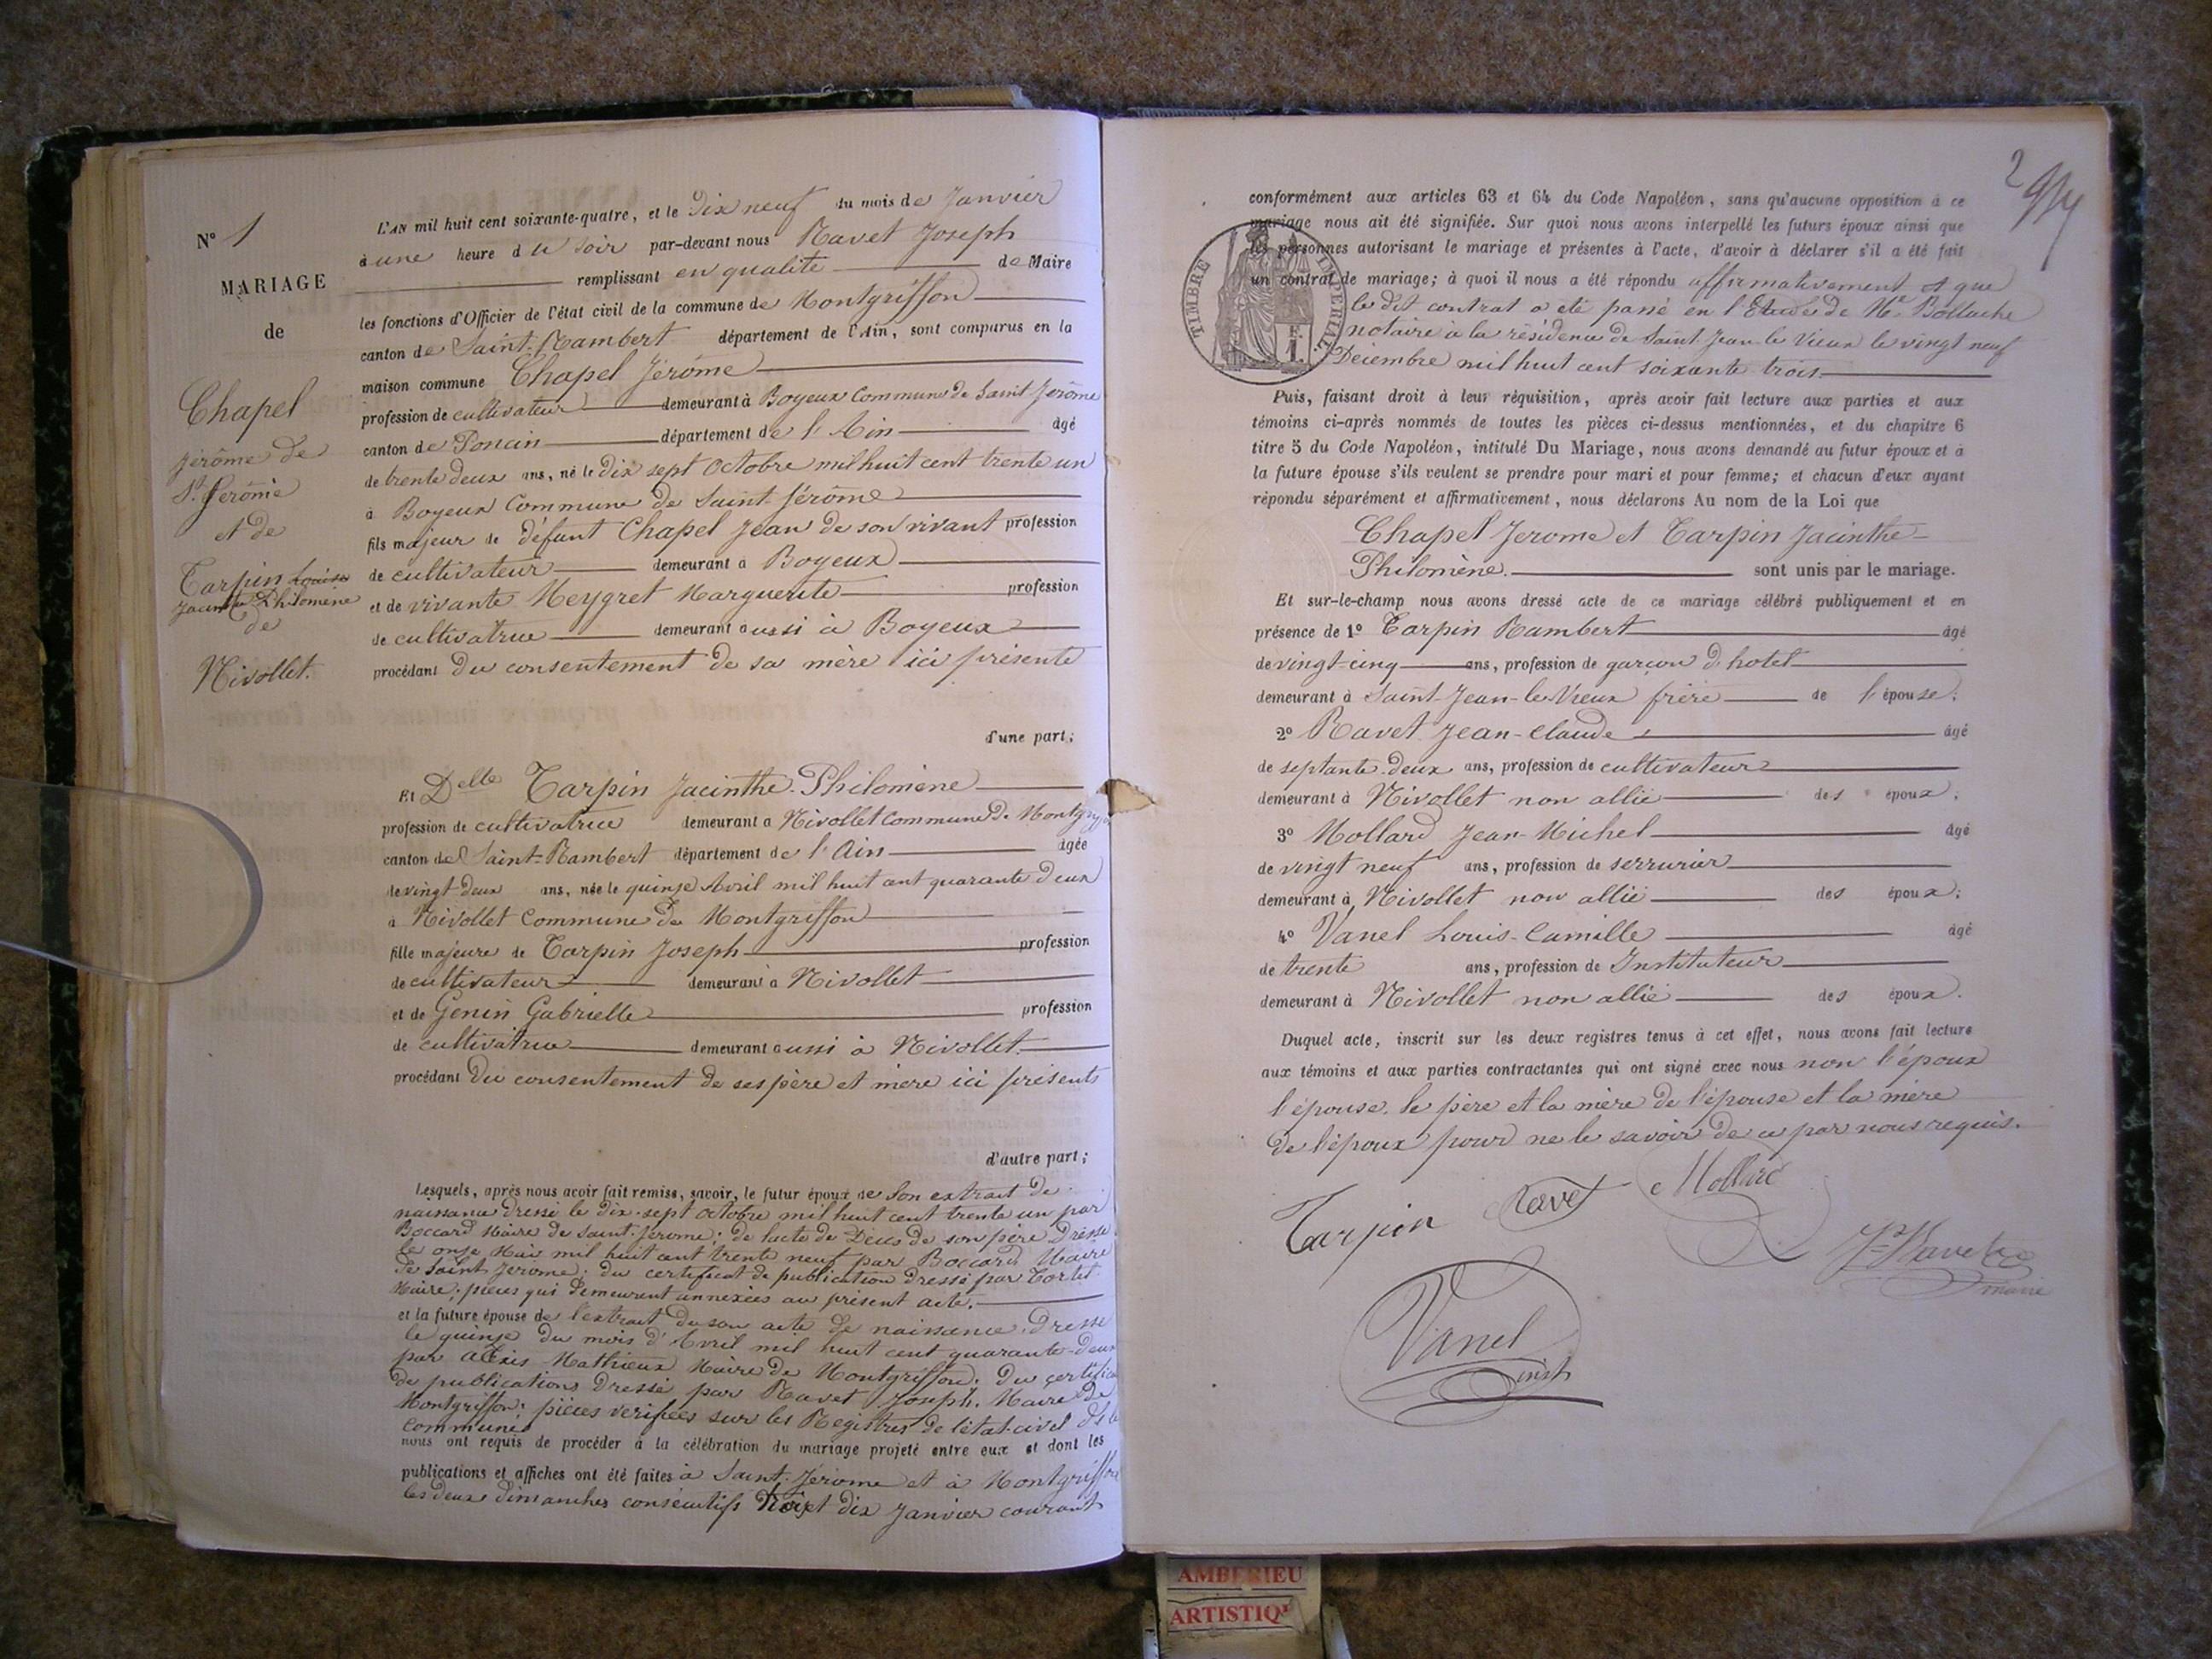 N° 1
MARIAGE
de
Chapel
Jérôme de
St Jerôme
et de
Tarpin Louise
Jacinthe Philomène
de
Nivollet.
L'AN mil huit cent soixante-quatre, et le Dix neuf du mois de Janvier
à une heure du soir par-devant nous Ravet Joseph
remplissant en qualité de Maire
les fonctions d'Officier de l'état civil de la commune de Montgriffon
canton de Saint-Rambert département de l'Ain, sont comparus en la
maison commune Chapel Jérôme
profession de cultivateur demeurant à Boyeux Commune de Saint-Jerôme
canton de Poncin département de l'Ain âgé
de trente deux ans, né le Dix sept Octobre mil huit cent trente un
à Boyeux Commune de Saint-Jérôme
fils majeur de défunt Chapel Jean de son vivant profession
de cultivateur demeurant à Boyeux
et de vivante Meygret Marguerite profession
de cultivatrice demeurant aussi à Boyeux
procédant du consentement de sa mère ici présente
d'une part;
Et Delle Tarpin Jacinthe-Philomène
profession de cultivatrice demeurant à Nivollet Commune de Montgriffon
canton de Saint-Rambert département de l'Ain âgée
de vingt deux ans, née le quinze Avril mil huit cent quarante deux
à Nivollet Commune de Montgriffon
fille majeure de Tarpin Joseph profession
de cultivateur demeurant à Nivollet
et de Genin Gabrielle profession
de cultivatrice demeurant aussi à Nivollet.
procédant du consentement de ses père et mère ici présents
d'autre part;
Lesquels, après nous avoir fait remise, savoir, le futur époux de Son extrait de
naissance dressé le Dix-sept Octobre mil huit cent trente un par
Boccard Maire de Saint-Jerome; de l'acte de Décès de son père Dressé
le onze Mai mil huit cent trente neuf par Boccard Maire
de Saint Jerome; du certificat de publication dressé par Tortet
Maire; pièces qui demeurent annexées au présent acte.
et la future épouse de l'extrait de son acte de naissance, Dressé
le quinze du mois d'Avril mil huit cent quarante-deux
par Alexis Mathieux Maire de Montgriffon; du certificat
de publications Dressé par Ravet Joseph, Maire de
Montgriffon; pièces vérifiées sur les Registres de l'état-civil de la
commune
nous ont requis de procéder à la célébration du mariage projeté entre eux et dont les
publications et affiches ont été faites à Saint-Jérome et à Montgriffon
les deux dimanches consécutifs trois et dix Janvier courant
2
conformément aux articles 63 et 64 du Code Napoléon, sans qu'aucune opposition à ce
mariage nous ait été signifiée. Sur quoi nous avons interpellé les futurs époux ainsi que
les personnes autorisant le mariage et présentes à l'acte, d'avoir à déclarer s'il a été fait
un contrat de mariage; à quoi il nous a été répondu affirmativement et que
le dit contrat a été passé en l'Etude de Me Bollache
notaire à la résidence de Saint-Jean-le Vieux le vingt neuf
Décembre mil huit cent soixante trois.
TIMBRE IMPERIAL
Puis, faisant droit à leur réquisition, après avoir fait lecture aux parties et aux
témoins ci-après nommés de toutes les pièces ci-dessus mentionnées, et du chapitre 6
titre 5 du Code Napoléon, intitulé Du Mariage, nous avons demandé au futur époux et à
la future épouse s'ils veulent se prendre pour mari et pour femme; et chacun d'eux ayant
répondu séparément et affirmativement, nous déclarons Au nom de la Loi que
Chapel Jerome et Tarpin Jacinthe-
Philomène. sont unis par le mariage.
Et sur-le-champ nous avons dressé acte de ce mariage célébré publiquement et en
présence de 1° Tarpin Rambert âgé
de vingt-cinq ans, profession de garçon d'hotel
demeurant à Saint-Jean-le-Vieux frère de l'épouse;
2° Ravet Jean-Claude âgé
de septante-deux ans, profession de cultivateur
demeurant à Nivollet non allié des époux;
3° Mollard Jean-Michel âgé
de vingt neuf ans, profession de serrurier
demeurant à Nivollet non allié des époux;
4° Vanel Louis-Camille âgé
de trente ans, profession de Instituteur
demeurant à Nivollet non allié des époux.
Duquel acte, inscrit sur les deux registres tenus à cet effet, nous avons fait lecture
aux témoins et aux parties contractantes qui ont signé avec nous non l'époux
l'épouse, le père et la mère de l'épouse et la mère
de l'époux pour ne le savoir de ce par nous requis.
Tarpin Ravet Mollard
Jh Ravet
maire
Vanel
Inst
AMBERIEU
ARTISTIQ